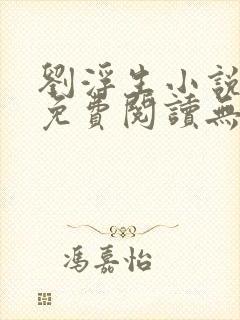 劉浮生小說
免費閱讀無
馮嘉怡